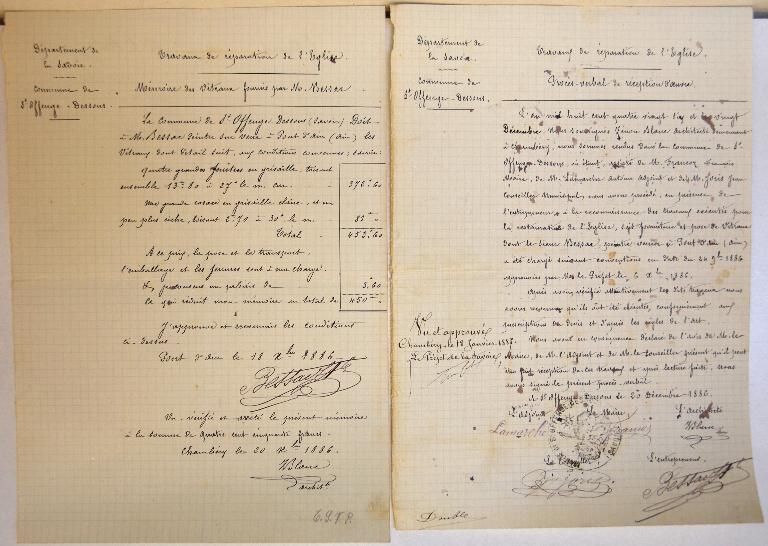 Département de
la Savoie.
Commune de
St Offenge - Dessous.
Travaux de réparation de l'Eglise.
Mémoire des Vitraux fournis par M. Bessac
La Commune de St Offenge Dessous (Savoie) Doit
à M. Bessac peintre sur verre à Pont d'Ain (Ain) les
Vitraux dont détail suit, aux conditions convenues ; savoir :
Quatre grandes fenêtres en grisaille faisant
ensemble 13m 80 à 27f le m. car.
une grande rosace en grisaille chêne, et un
peu plus riche, faisant 2.70 à 30f le m. 81 "
Total 453.60
A ce prix, la pose et le transport,
l'emballage et les ferrures sont à ma charge.
de 3.60
Ce qui réduit mon mémoire au total de 450 "
J'approuve et reconnais les conditions
ci-dessus.
Pont d'Ain le 18 Xbre 1886
Bessac
Vu, vérifié et arrêté le présent mémoire
à la somme de quatre cent cinquante francs.
Chambéry le 20 Xbre 1886.
Blanc
Archit
Département de
la Savoie.
Commune de
St Offenge - Dessous.
Travaux de réparation de l'Eglise.
Procès-verbal de réception d'œuvre.
L'an mil huit cent quatre vingt six et le vingt
Décembre, nous soussigné Blanc Architecte demeurant
à Chambéry, nous sommes rendu dans la commune de St
Offenge Dessous, où étant, assisté de M. Francoz François
Maire, de M. Lamarche Antoine Adjoint et de M. Jean
Conseiller Municipal, nous avons procédé, en présence de
l'entrepreneur à la reconnaissance des travaux exécutés pour
la restauration de l'Eglise, soit fourniture et pose de Vitraux
dont le sieur Bessac, peintre verrier à Pont d'Ain (Ain)
a été chargé suivant conventions en date du 24 9bre 1886
approuvées par Mr le Préfet le 6 Xbre 1886.
Après avoir vérifié attentivement les dits travaux nous
avons reconnu qu'ils ont été exécutés, conformément aux
prescriptions du devis et d'après les règles de l'art.
Nous avons en conséquence déclaré de l'avis de M. le
Maire, de M. l'Adjoint et de M. le Conseiller présent qu'il peut
être fait réception de ces travaux et après lecture faite, nous
avons signé le présent procès-verbal.
A St Offenge Dessous le 20 Décembre 1886.
Vu et approuvé
Chambéry le 12 Janvier 1887.
Le Préfet de la Savoie,
L'adjoint
Le Maire
L'architecte
Lamarche
Blanc
Le Conseiller
L'entrepreneur
Bessac
Double